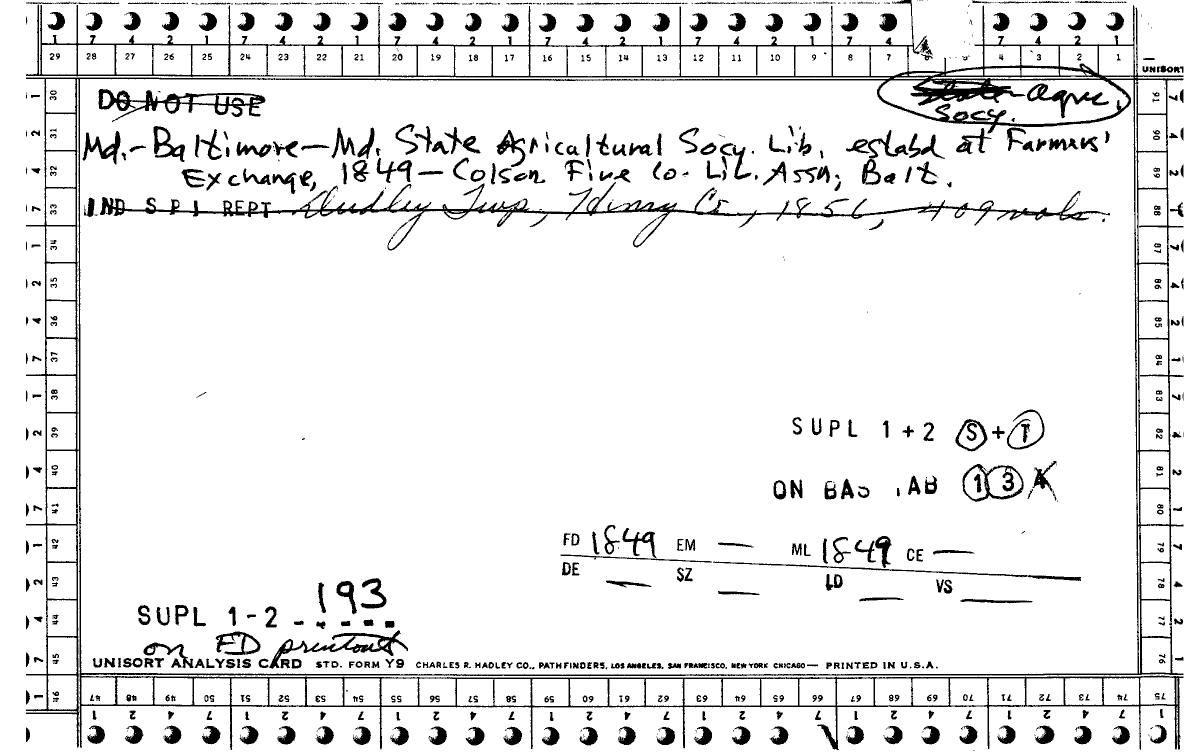 1 7 4 2 1 7 4 2 1 7 4 2 1 7 4 2 1 7 4 2 1 7 4 2 1
29 28 27 26 25 24 23 22 21 20 19 18 17 16 15 14 13 12 11 10 9 8 7 6 5 4 3 2 1
UNISORT
DO NOT USE
State Agric.
Socy.
Md.-Baltimore-Md. State Agricultural Socy. Lib. estabd at Farmers'
Exchange, 1849-Colson Five Co. Lib. Assn; Balt.
IND S P I REPT Dudley Twp, Henry Co, 1856, 409 vols.
SUPL 1+2 S+T
ON BAS TAB 1 3 4
FD 1849 EM — ML 1849 CE —
DE — SZ — LD — VS —
193
SUPL 1-2 -----
on FD printout
UNISORT ANALYSIS CARD STD. FORM Y9 CHARLES R. HADLEY CO., PATHFINDERS, LOS ANGELES, SAN FRANCISCO, NEW YORK CHICAGO— PRINTED IN U.S.A.
30 31 32 33 34 35 36 37 38 39 40 41 42 43 44 45 46
91 90 89 88 87 86 85 84 83 82 81 80 79 78 77 76 75
47 48 49 50 51 52 53 54 55 56 57 58 59 60 61 62 63 64 65 66 67 68 69 70 71 72 73 74
1 2 4 7 1 2 4 7 1 2 4 7 1 2 4 7 1 2 4 7 1 2 4 7 1 2 4 7 1